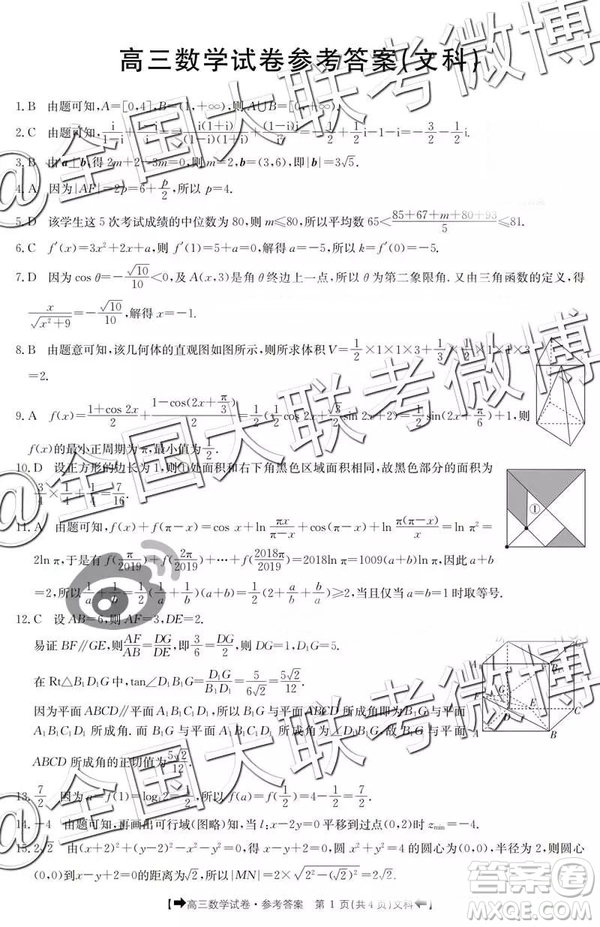 高三数学试卷参考答案(文科)
1. B 由题可知,A=[0,4],B=(1,+∞),则A∪B=[0,+∞).
3. B 由a⊥b,得2m+2-3m=0,则m=2,b=(3,6),即|b|=3√5.
4. A 因为|AF|=2p=6+p/2,所以p=4.
5. D 该学生这5次考试成绩的中位数为80,则m≤80,所以平均数65<(85+67+m+80+93)/5≤81.
6. C f′(x)=3x²+2x+a,则f′(1)=5+a=0,解得a=-5,所以f′(2)=11.
7. D 因为cos θ=-√10/10<0,及A(x,3)是角θ终边上一点,所以θ为第二象限角.又由三角函数的定义,得
x/√(x²+9)=-√10/10,解得x=-1.
8. B 由题意可知,该几何体的直观图如图所示,则所求体积V=1/2×1×1×3+1/2×1×1×1
=2.
9. A f(x)=(1+cos 2x)/2+(1-cos(2x+π/3))/2
f(x)的最小正周期为π,最小值为1/2.
10. D 设正方形的边长为1,则①处面积和右下角黑色区域面积相同,故黑色部分的面积为
①
11. A 由题可知,f(x)+f(π-x)=cos x+ln πx/(π-x)+cos(π-x)+ln π(π-x)/x=
2ln π,于是有f(π/2019)+f(2π/2019)+…+f(2018π/2019)=2018ln π=1009(a+b)ln π,因此a+b
=2,所以1/a+1/b=1/2(1/a+1/b)(a+b)=1/2(2+a/b+b/a)≥2,当且仅当a=b=1时取等号.
12. C 设AB=6,则AF=3,DE=2.
易证BF∥GE,则AF/AB=DG/DE,即3/6=DG/2,所以DG=1,D₁G=5.
在Rt△B₁D₁G中,tan∠D₁B₁G=D₁G/B₁D₁=5/(6√2)=5√2/12.
因为平面ABCD∥平面A₁B₁C₁D₁,所以B₁G与平面ABCD所成角即为B₁G与平面
A₁B₁C₁D₁所成角.而B₁G与平面A₁B₁C₁D₁所成角为∠D₁B₁G,所以B₁G与平面
ABCD所成角的正切值为5√2/12.
13. 7/2 因为f(a)=log₂2=1/2,所以f(a)=f(1/2)=4-1/2=7/2.
14. -4 由题可画出可行域(图略)知,当l:x-2y=0平移到过点(0,2)时zmin=-4.
15. 2√2 由(x+2)²+(y-2)²=4与x²+y²=4,得x-y+2=0,圆x²+y²=4的圆心为(0,0),半径为2,则圆心
(0,0)到x-y+2=0的距离d=2/√2=√2,所以|MN|=2×√(2²-(√2)²)=2√2.
高三数学试卷·参考答案 第1页(共4页)文科
@全国大联考微博
@全国大联考微博
@全国大联考微博
答案圈